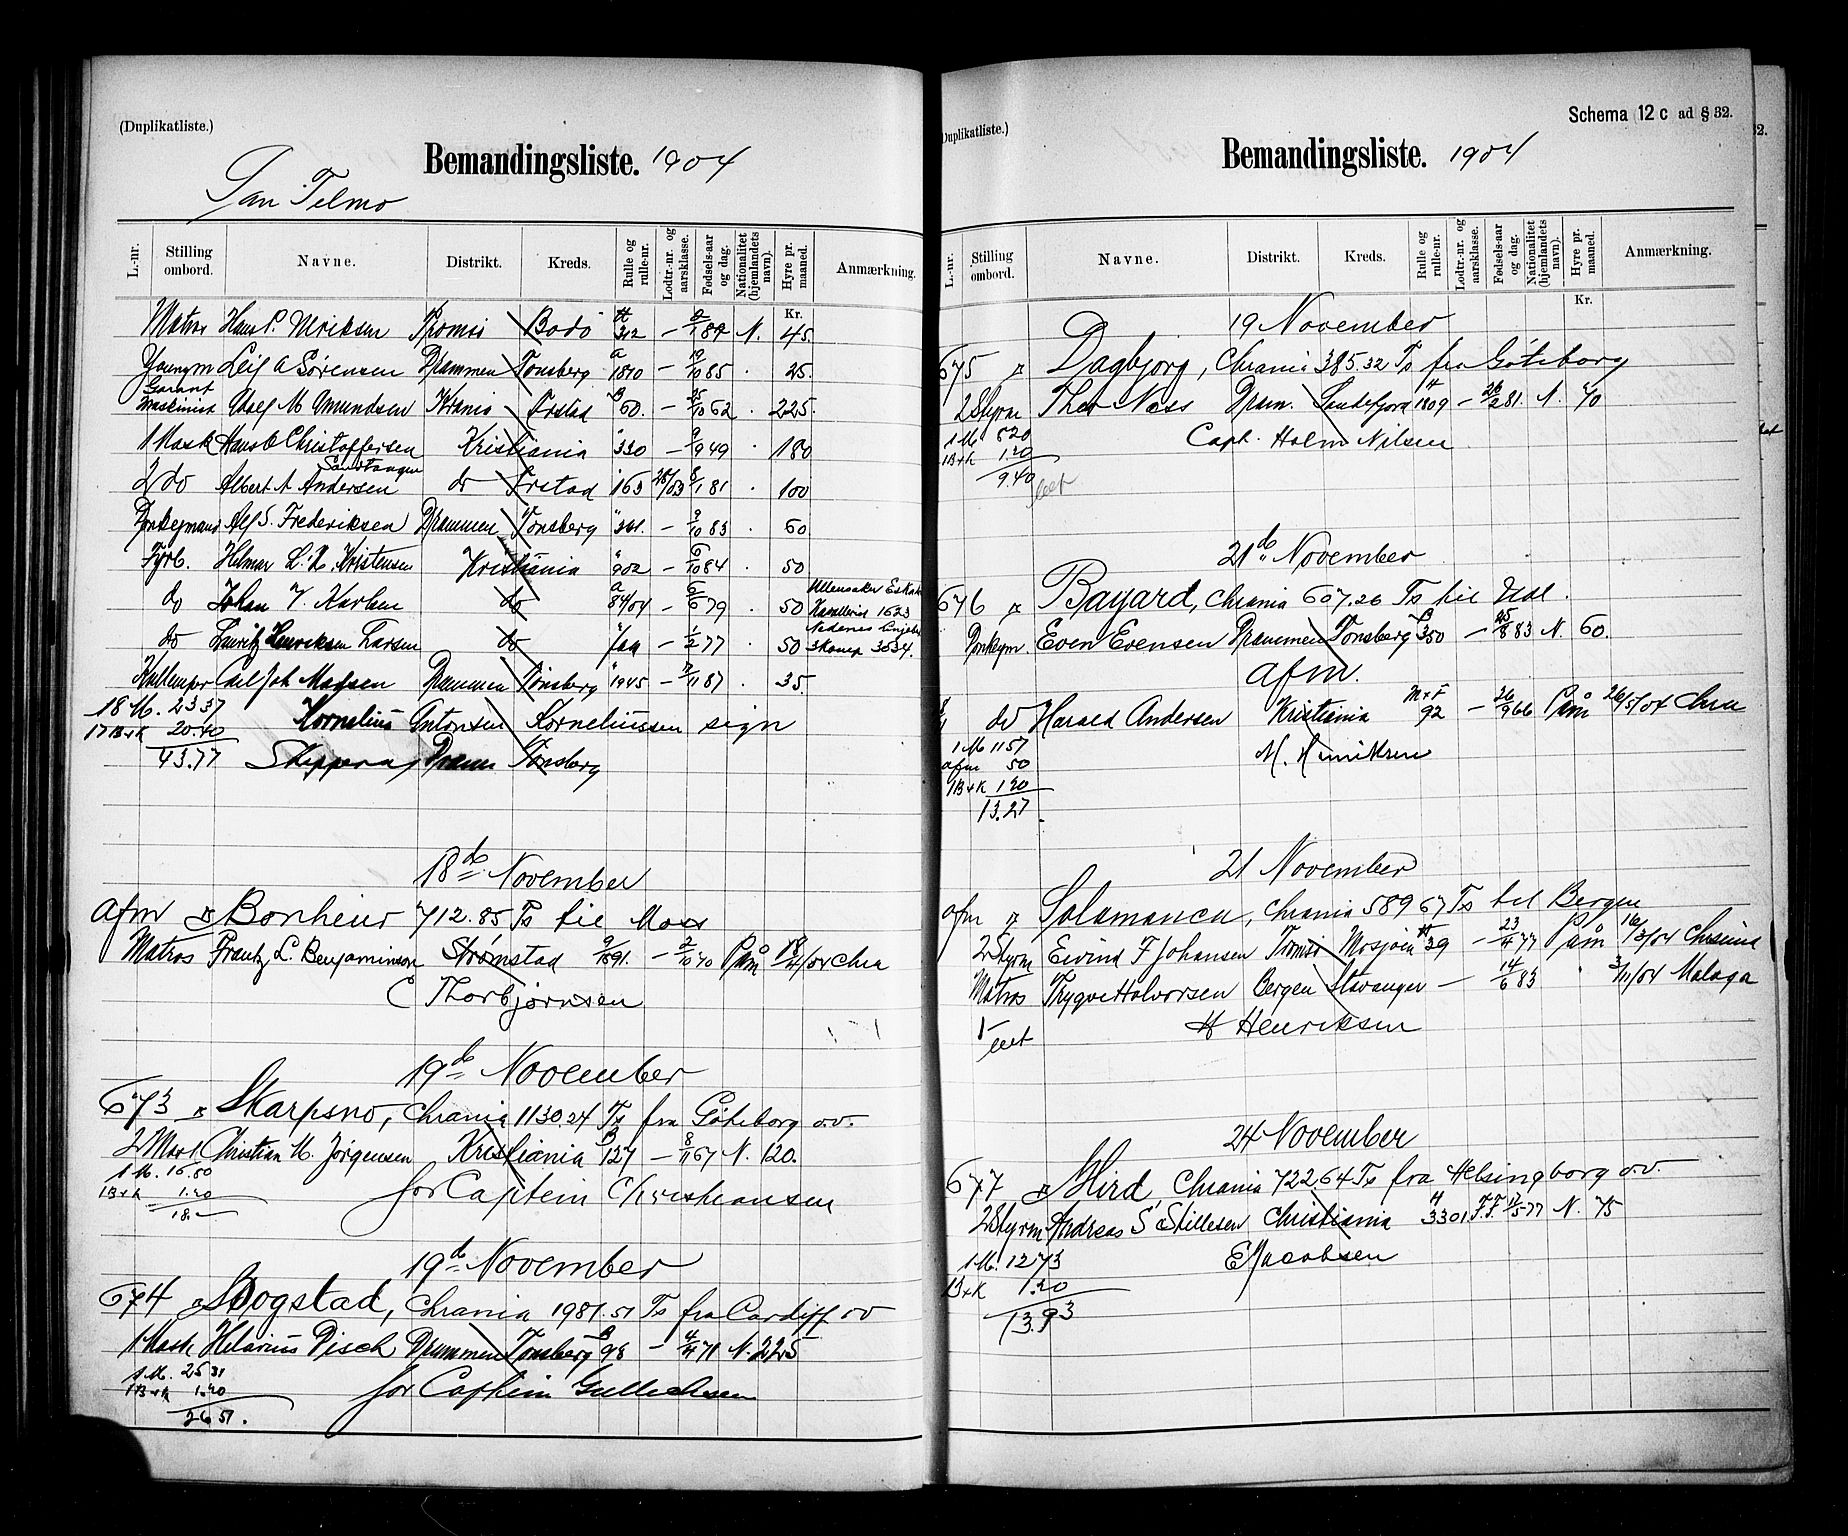 (Duplikatliste.)
Bemandingsliste. 1904
San Telmo
L.-nr. Stilling ombord. Navne. Distrikt. Kreds. Rulle og rulle-nr. Lodtr.-nr. og aarsklasse. Fødsels-aar og dag. Nationalitet (hjemlandets navn). Hyre pr. maaned. Anmærkning.
Kr.
Matros Hans P. Ulriksen Tromsø Bodø 312 — N. 45.
Youngm Leif A Sørensen Drammen Tønsberg 1810 — 19/10 85 . 25.
Garant
Maskinist Adolf M Amundsen Krania Ørstad 60. — 25/10 62 . 225.
1 Mask Hans E Christoffersen Kristiania " 330 — 9/9 49 . 180
Sandtangen
2 do Albert A Andersen do Ørstad " 163 28/03 8/1 81 . 100
Donkeymand Alf S. Frederiksen Drammen Tønsberg " 361. — 9/10 83 . 60
Fyrb. Hilmar L. K. Kristensen Kristiania " 902 — 6/10 84 . 50
do Johan V. Karlsen do 84/04 — 6/6 79 . 50 Ullensaker Eskat Hærelvid 1623
do Lauritz Henriksen Larsen do " — 1/2 77 . 50 Nedenes 3 komp 3634.
Kullemper Axel Joh Madsen Drammen Tønsberg " 1945 — 7/11 87 . 35.
18 M. 23 37
17 B+K 20.40
43.77
Kornelius Antonsen Korneliussen sign
Skipperen, Dram Tønsberg
18de November
afm Bonheur 712.85 Ts til Moss
Matros Frantz L. Benjaminson Strømstad 9/1891. — 2/10 70 Påm 18/4/04 Chra
C Thorbjørnsen
19de November
673 Skarpsno, Chrania 1130 24 Ts fra Göteborg o.v.
2 Mask Christian M. Jørgensen Kristiania B 127 — 8/11 67 N. 120.
1 M. 16.80
1B+K 1.20
18.—
for Captein Christiansen
19de November
674 Bogstad, Chrania 1981.51 Ts fra Cardiff o v
1 Mask Helarius Disch Drammen Tønsberg B 98 — 4/11 71 N. 225
1 M. 25 31
1B+K 1.20
26 51.
for Captein Gullichsen
(Duplikatliste.)
Schema 12 c ad § 32.
Bemandingsliste. 1904
L.-nr. Stilling ombord. Navne. Distrikt. Kreds. Rulle og rulle-nr. Lodtr.-nr. og aarsklasse. Fødsels-aar og dag. Nationalitet (hjemlandets navn). Hyre pr. maaned. Anmærkning.
Kr.
19 November
675 Dagbjørg, Chrania 385.32 Ts fra Göteborg
2 Styrm Thor Ness Dram. Sandefjord 1809 — 26/2 81. N. 70
1 M 820
1B+K 1.20
9.40
Capt. Holm Nilsen
21de November
676 Bayard, Chrania 607.26 Ts til Udl.
Donkeym. Even Evensen Drammen Tønsberg 350 — 25/8 83 N. 60.
afm.
do Harald Andersen Kristiania M+F 92 — 26/9 66 Påm 26/5/04 Chra
1 M 11 57
afm 50
1B+K 1 20
13.27
M. Henriksen
21 November
afm Salamanca, Chrania 589 67 Ts til Bergen
2 Styrm Eivind F Johansen Tromsø Mosjøen 39 — 23/11 77 Påm 16/3/04 Chrania
Matros Trygve Halvorsen Bergen Stavanger — 14/6 83 " 3/11/04 Malaga
H Henriksen
24 November
677 Hird, Chrania 722,64 Ts fra Helsingborg o.v.
2 Styrm Andreas S. Stillesen Christiania 3301 F.F. 17/5 77 N. 75
1 M. 12 73
1B+K 1.20
13.93
E Jacobsen